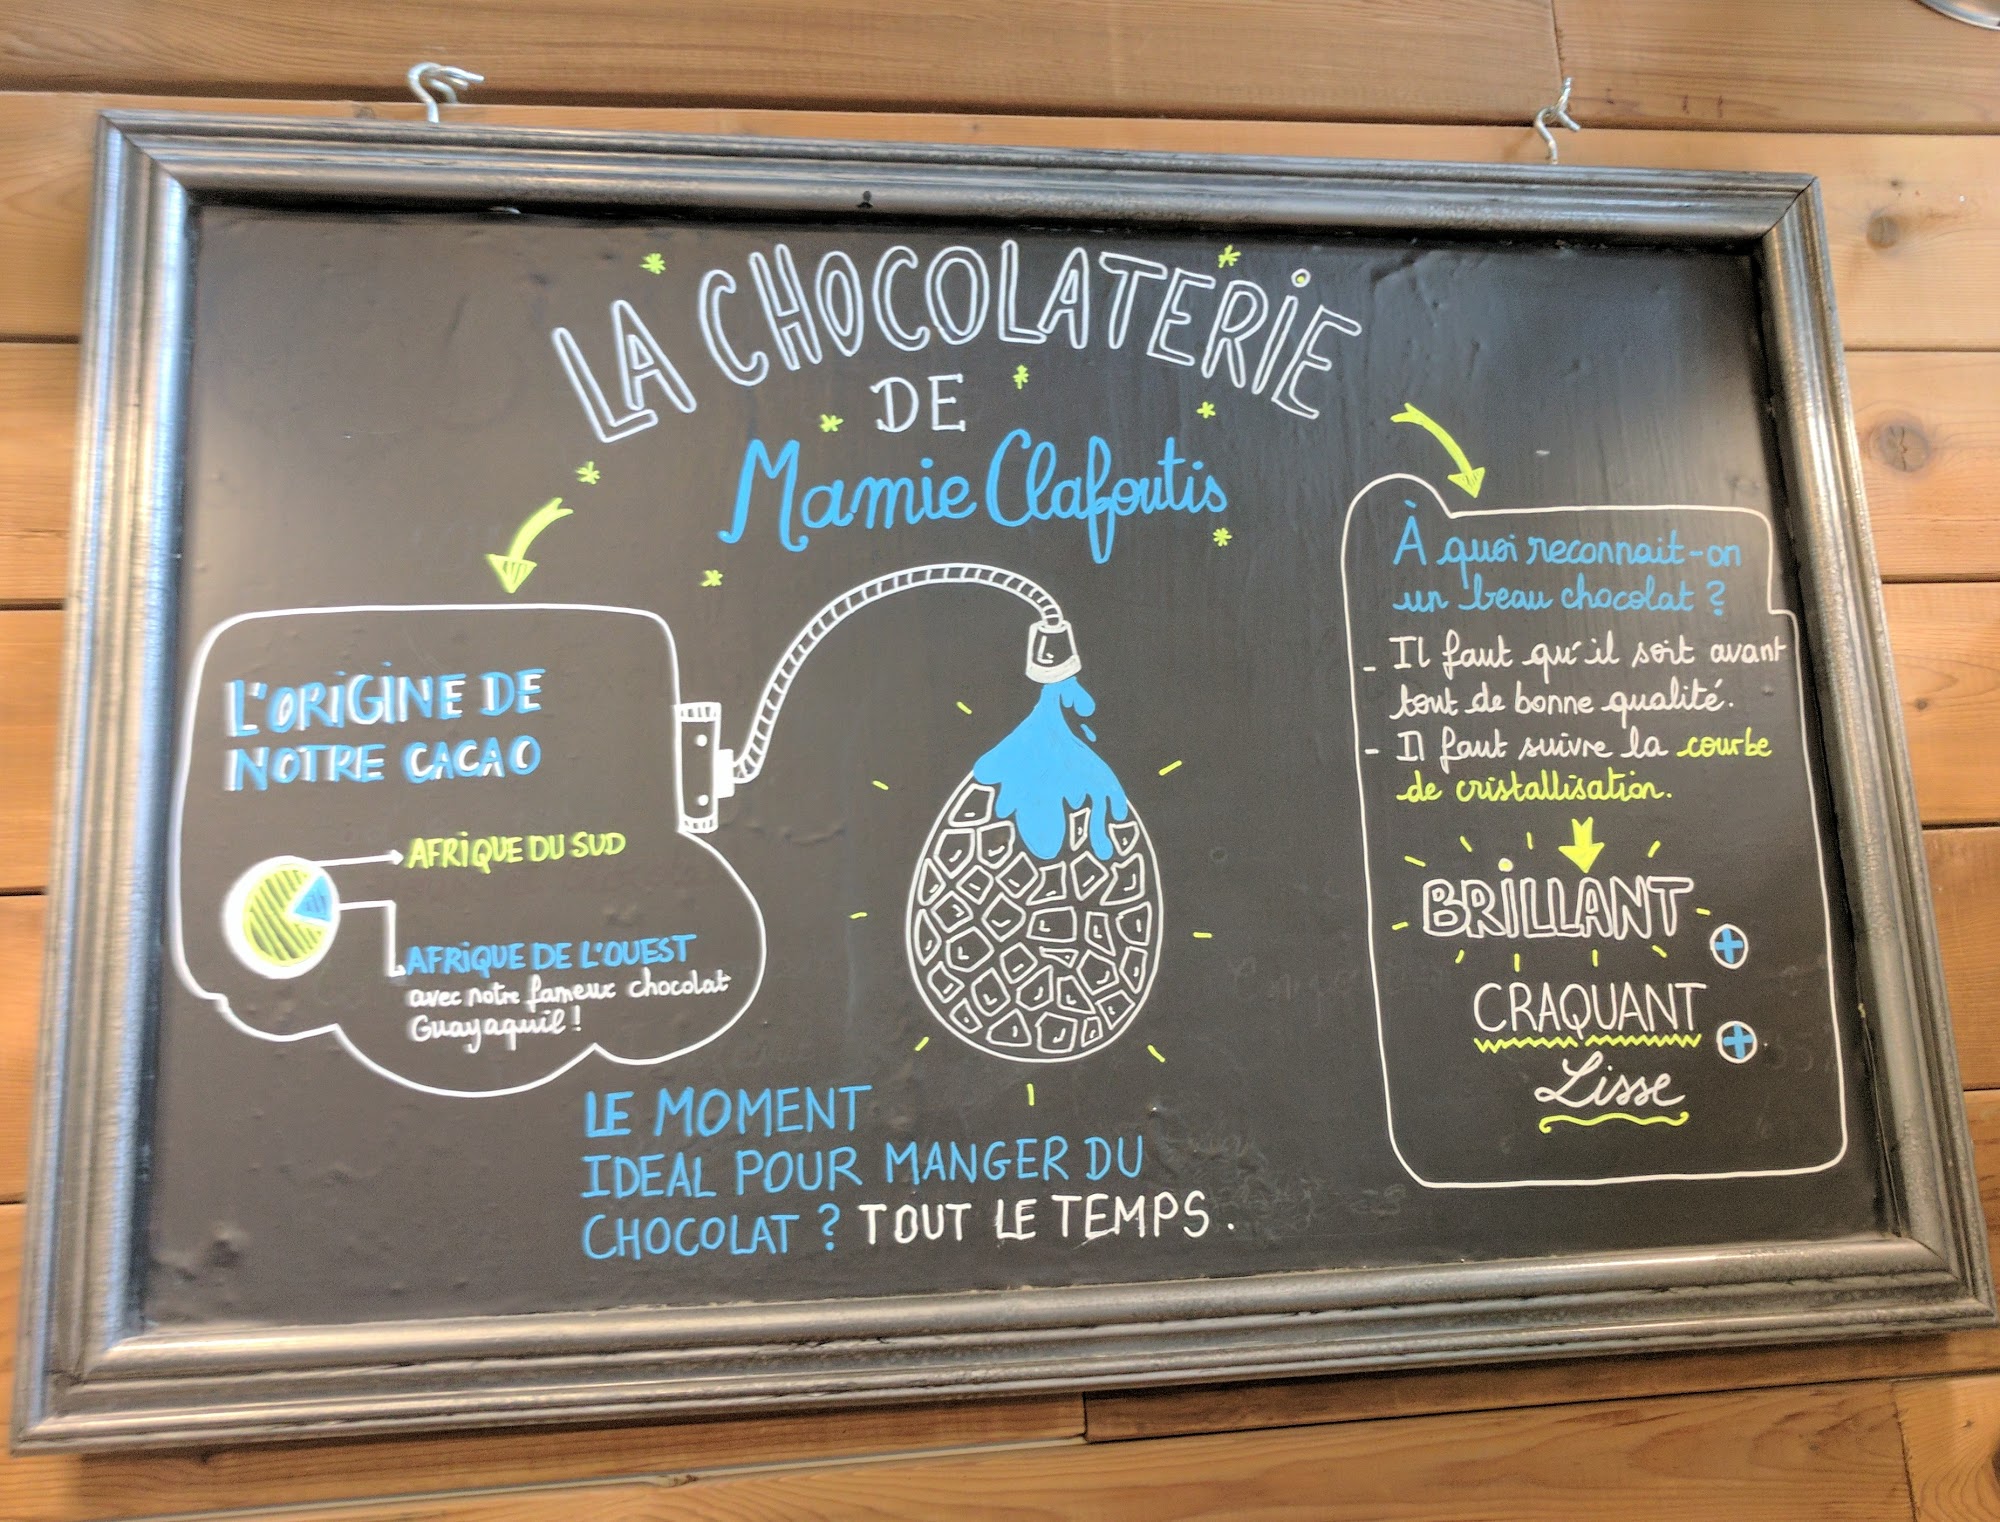 LA CHOCOLATERIE
DE
Mamie Clafoutis
L'ORIGINE DE
NOTRE CACAO
AFRIQUE DU SUD
AFRIQUE DE L'OUEST
avec notre fameux chocolat
Guayaquil !
LE MOMENT
IDEAL POUR MANGER DU
CHOCOLAT ? TOUT LE TEMPS.
À quoi reconnait-on
un beau chocolat ?
- Il faut qu'il soit avant
tout de bonne qualité.
- Il faut suivre la courbe
de cristallisation.
BRILLANT
+
CRAQUANT
+
Lisse